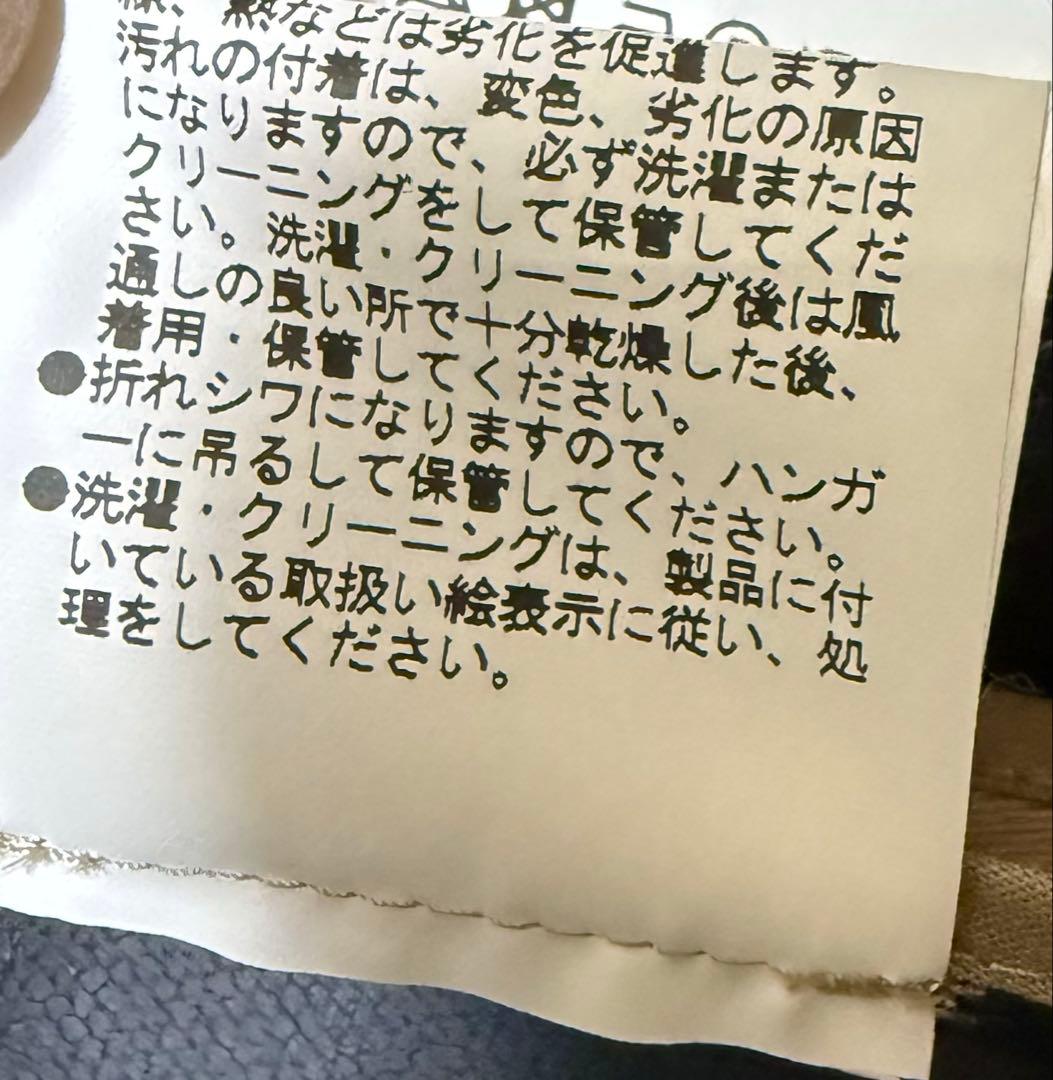 熱などは劣化を促進します。
汚れの付着は、変色、劣化の原因
になりますので、必ず洗濯または
クリーニングをして保管してくだ
さい。洗濯・クリーニング後は風
通しの良い所で十分乾燥した後、
着用・保管してください。
●折れシワになりますので、ハンガ
ーに吊るして保管してください。
●洗濯・クリーニングは、製品に付
いている取扱い絵表示に従い、処
理をしてください。